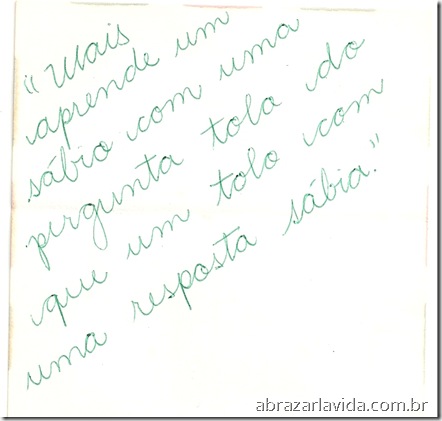 "Mais
aprende um
sábio com uma
pergunta tola do
que um tolo com
uma resposta sábia."
abrazarlavida.com.br